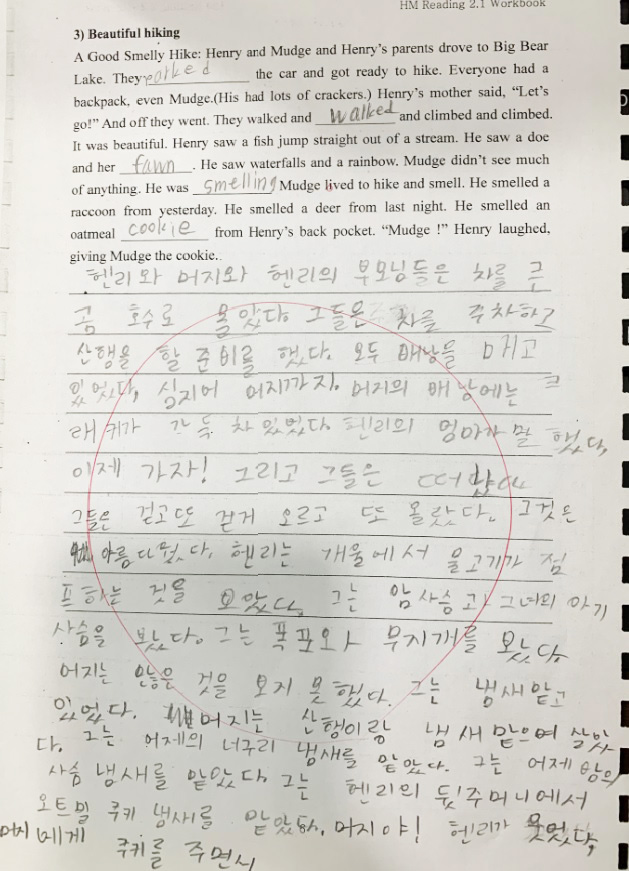 HM Reading 2.1 Workbook
3) Beautiful hiking
A Good Smelly Hike: Henry and Mudge and Henry's parents drove to Big Bear
Lake. They parked the car and got ready to hike. Everyone had a
backpack, even Mudge.(His had lots of crackers.) Henry's mother said, "Let's
go!" And off they went. They walked and walked and climbed and climbed.
It was beautiful. Henry saw a fish jump straight out of a stream. He saw a doe
and her fawn. He saw waterfalls and a rainbow. Mudge didn't see much
of anything. He was smelling Mudge lived to hike and smell. He smelled a
raccoon from yesterday. He smelled a deer from last night. He smelled an
oatmeal cookie from Henry's back pocket. "Mudge !" Henry laughed,
giving Mudge the cookie.
헨리와 머지와 헨리의 부모님들은 차를 큰
곰 호수로 몰았다 그들은 차를 주차하고
산행을 할 준비를 했다. 모두 배낭을 메고
있었다, 심지어 머지까지. 머지의 배낭에는 크
래커가 가득 차 있었다 헨리의 엄마가 말했다,
이제 가자! 그리고 그들은 떠났다
그들은 걷고 또 걷게 오르고 또 올랐다. 그것은
아름다웠다. 헨리는 개울에서 물고기가 점
프하는 것을 보았다. 그는 암사슴과 그녀의 아기
사슴을 봤다. 그는 폭포와 무지개를 봤다.
머지는 많은 것을 보지 못했다. 그는 냄새 맡고
있었다. 머지는 산행이랑 냄새 맡으며 살았
다. 그는 어제의 너구리 냄새를 맡았다. 그는 어제 밤의
사슴 냄새를 맡았다 그는 헨리의 뒷주머니에서
오트밀 쿠키 냄새를 맡았다. 머지야! 헨리가 웃었다,
머지에게 쿠키를 주면서